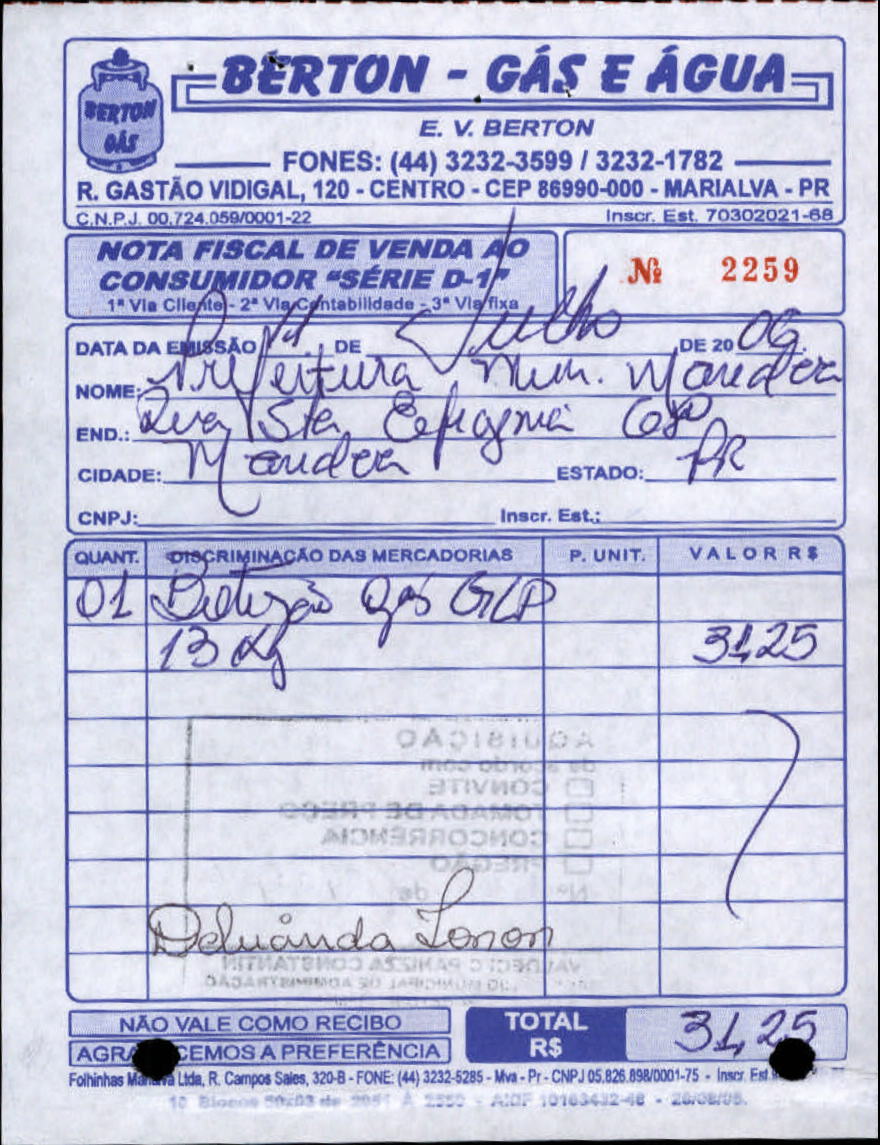 BERTON GÁS
BERTON - GÁS E ÁGUA
E. V. BERTON
FONES: (44) 3232-3599 / 3232-1782
R. GASTÃO VIDIGAL, 120 - CENTRO - CEP 86990-000 - MARIALVA - PR
C.N.P.J. 00.724.059/0001-22 Inscr. Est. 70302021-68
NOTA FISCAL DE VENDA AO
CONSUMIDOR "SÉRIE D-1"
1ª Via Cliente - 2ª Via Contabilidade - 3ª Via fixa
Nº 2259
DATA DA EMISSÃO DE Julho DE 20 06.
NOME: Prefeitura Mun. Mandea
END.: Rua Sta Efigenia 680
CIDADE: Mandea ESTADO: PR
CNPJ: Inscr. Est.:
QUANT. DISCRIMINAÇÃO DAS MERCADORIAS P. UNIT. VALOR R$
01 Butijão gás GLP
13 Kg 31,25
AQUISIÇÃO
de acordo com
CONVITE
TOMADA DE PREÇO
CONCORRÊNCIA
PREGÃO
Nº de / /
VALDECI C PANIZZA CONSTANTIN
NÃO VALE COMO RECIBO
AGRADECEMOS A PREFERÊNCIA
TOTAL R$ 31,25
Folhinhas Marialva Ltda, R. Campos Sales, 320-B - FONE: (44) 3232-5285 - Mva - Pr - CNPJ 05.826.898/0001-75 - Inscr. Est.
10 Blocos 50x03 de 2051 À 2550 - AIDF 10163432-48 -